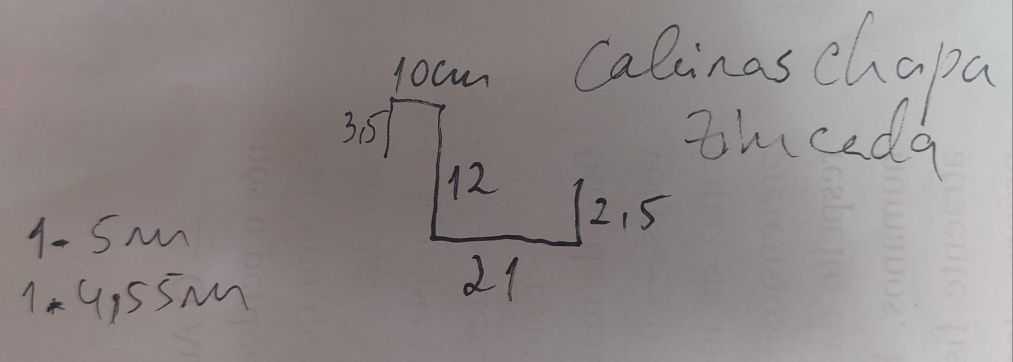 10cm
Caleiras chapa
zincada
3,5
12
2,5
21
1- 5m
1- 4,55m